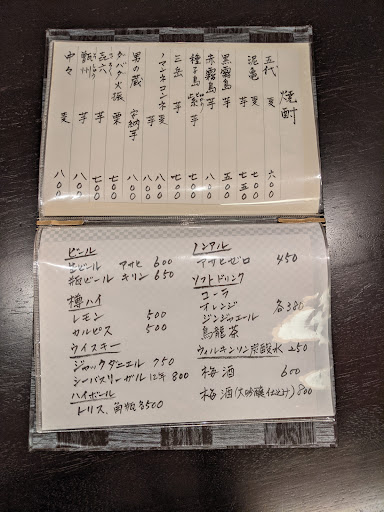 焼酎
五代 麦 六〇〇
泥亀 麦 七五〇
黒霧島 芋 五〇〇
赤霧島 芋 七〇〇
種子島 紫 芋 七〇〇
三岳 芋 七〇〇
芋 麦 八〇〇
男の蔵 安納芋 八〇〇
ダバダ火振 栗 七〇〇
㐂六 芋 七〇〇
甑州 芋 八〇〇
中々 麦 八〇〇
ビール
生ビール アサヒ 600
瓶ビール キリン 650
樽ハイ
レモン 500
カルピス 500
ウイスキー
ジャックダニエル 750
シーバスリーガル12年 800
ハイボール
トリス、角瓶 各500
ノンアル
アサヒゼロ 450
ソフトドリンク
コーラ
オレンジ
ジンジャエール 各380
烏龍茶
ウィルキンソン炭酸水 250
梅酒 600
梅酒(大吟醸仕込み) 800